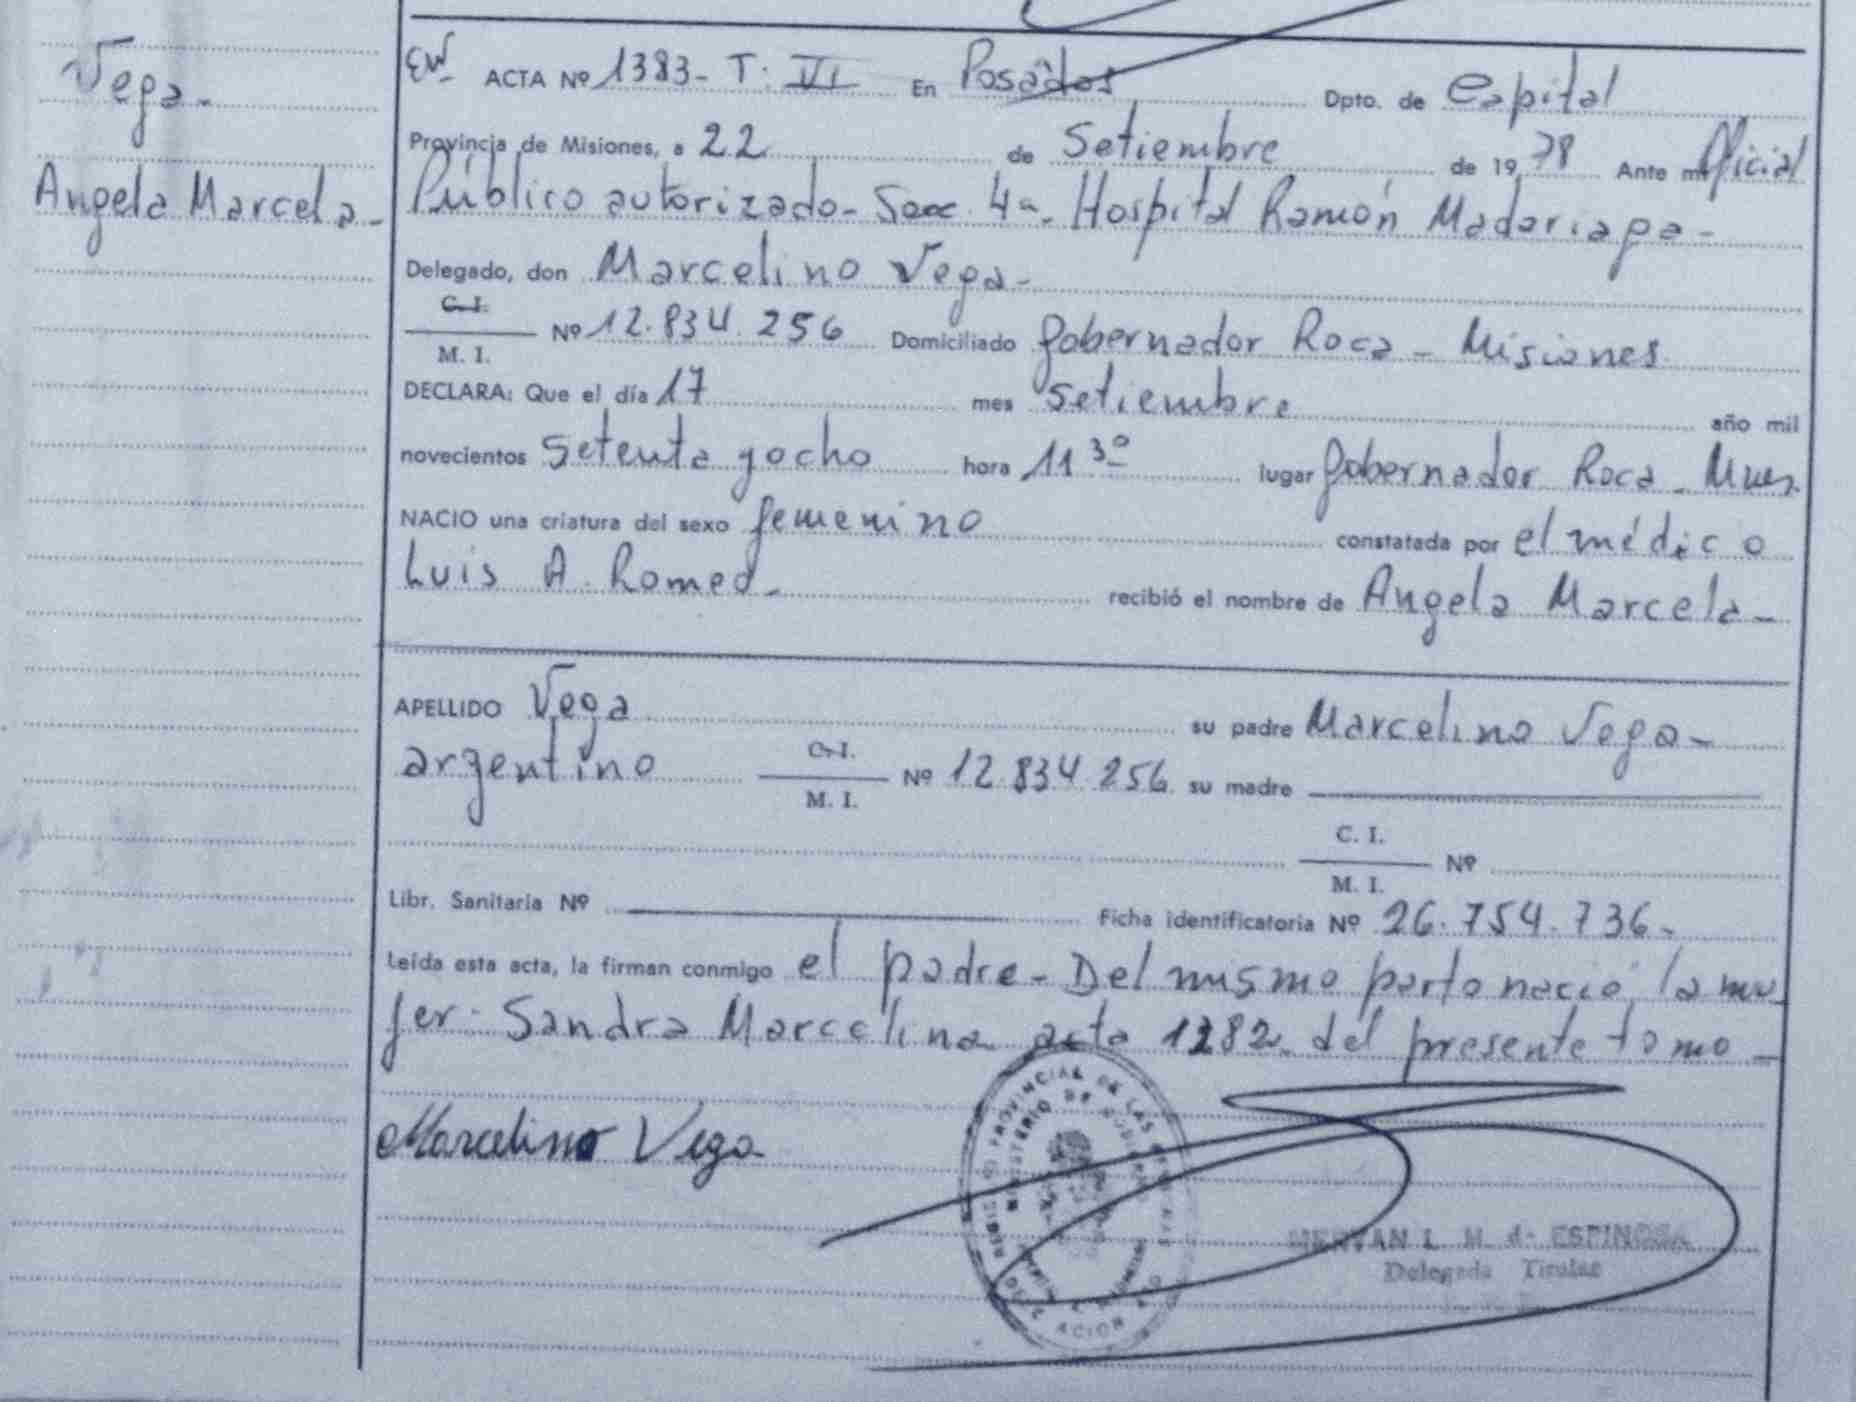 Vega-
Angela Marcela-
ACTA Nº 1383- T. VI En Posadas Dpto. de Capital
Provincia de Misiones, a 22 de Setiembre de 19 78 Ante mi Oficial
Público autorizado- Secc. 4a- Hospital Ramón Madariaga-
Delegado, don Marcelino Vega-
C. I.
M. I. Nº 12.834.256 Domiciliado Gobernador Roca - Misiones
DECLARA: Que el día 17 mes setiembre año mil
novecientos setenta y ocho hora 11 30 lugar Gobernador Roca - Mnes.
NACIO una criatura del sexo femenino constatada por el médico
Luis A. Romed- recibió el nombre de Angela Marcela-
APELLIDO Vega su padre Marcelino Vega-
argentino C. I. M. I. Nº 12.834.256 su madre
C. I.
M. I. Nº
Libr. Sanitaria Nº Ficha identificatoria Nº 26.754.736-
Leída esta acta, la firman conmigo el padre- Del mismo parto nació la mu
jer- Sandra Marcelina acta 1382 del presente tomo-
Marcelino Vega
L. M. de ESPINOSA
Delegada Titular